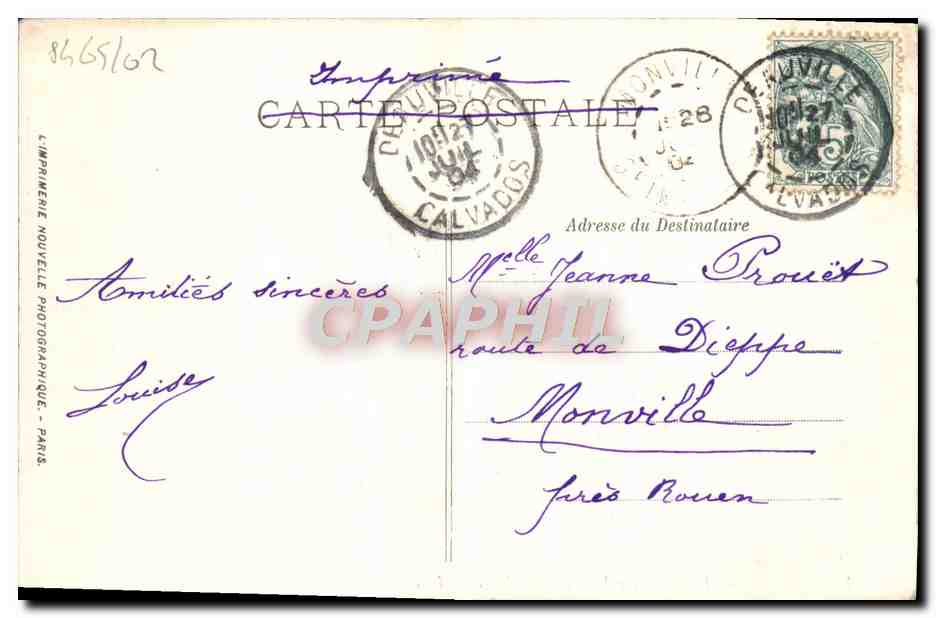 8465/02
Imprimé
CARTE POSTALE
DEAUVILLE
10H 27
JUIL
04
CALVADOS
MONVILL
28
04
DEAUVILLE
10H 27
JUIL
04
CALVADOS
5
POSTES
Adresse du Destinataire
Melle Jeanne Prouët
route de Dieppe
Monville
près Rouen
Amitiés sincères
Louise
L'IMPRIMERIE NOUVELLE PHOTOGRAPHIQUE. - PARIS.
CPAPHIL